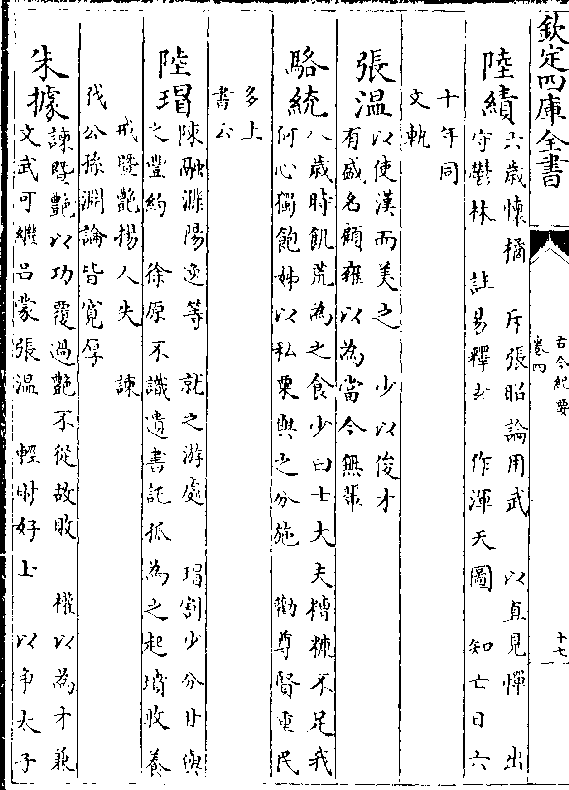 欽定四庫全書
古今紀要
卷四
十七
陸績
六歲懷橘 斥張昭論用武 以直見憚 出
守鬱林 註易釋玄 作渾天圖 知亡日六
十年同
文軌
張溫
以使漢而美之 少以俊才
有盛名顧雍以為當今無輩
駱統
八歲時飢荒為之食少曰士大夫糟糠不足我
何心獨飽姊以私粟與之分施 勸尊賢重民
多上
書云
陸瑁
陳融濮陽逸等 就之游處 瑁割少分甘與
之豐約 徐原不識遺書託孤為之起墳收養
戒暨艷揚人失 諫
伐公孫淵論皆寬厚
朱據
諫暨艶以功覆過艶不從故敗 權以為才兼
文武可繼呂蒙張溫 輕財好士 以争太子